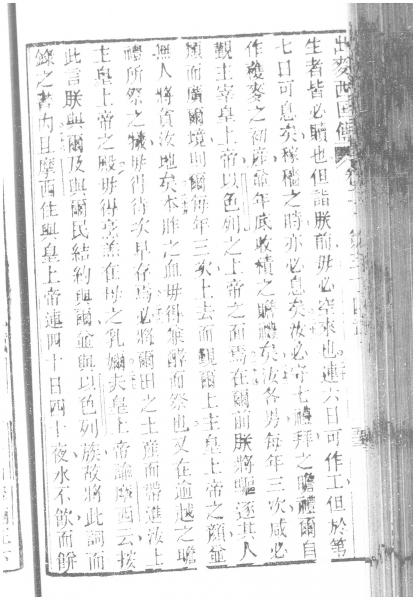 出麥西國傳
生者皆必贖也但詣朕前毋必空來也連六日可作工但於第
七日可息矣稼穡之時亦必息矣汝必守七禮拜之瞻禮爾自
作穫麥之初並論年底收積之瞻禮矣汝各男每年三次咸必
覲主宰皇上帝以色列之上帝之面焉在爾前朕將驅逐其人
類而廣爾境則爾每年三次上去而覲爾上主皇上帝之顏並
無人將貪汝地矣本牲之血毋得兼酵而祭也又在逾越之瞻
禮所祭之犧毋得待次早存焉必將爾田之土產而帶進汝上
主皇上帝之殿毋得烹羔在母之乳嫺夫皇上帝諭摩西云按
此言朕與爾及與爾民結約與爾並與以色列族故將此詞而
錄之書內且摩西住與皇上帝連四十日四十夜水不飲而餅